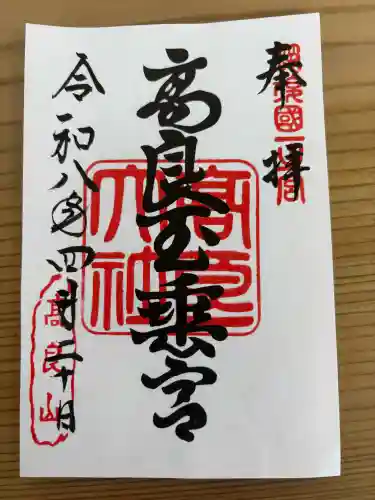 奉拝
筑後國一之宮
高良玉垂宮
高良大社
令和八年四月二十日
高良山